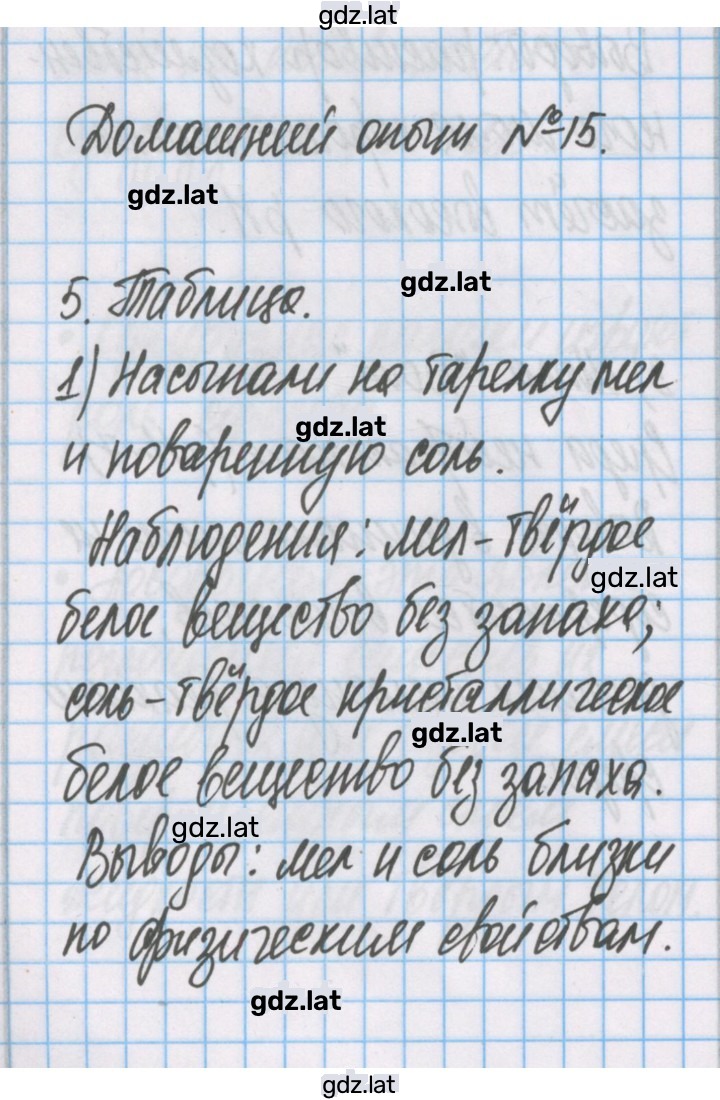 gdz.lat
Домашний опыт №15.
gdz.lat
gdz.lat
5. Таблица.
1) Насыпали на тарелку мел
gdz.lat
и поваренную соль.
Наблюдения: мел - твёрдое
gdz.lat
белое вещество без запаха;
соль - твёрдое кристаллическое
gdz.lat
белое вещество без запаха.
gdz.lat
Выводы: мел и соль близки
по физическим свойствам.
gdz.lat
gdz.lat